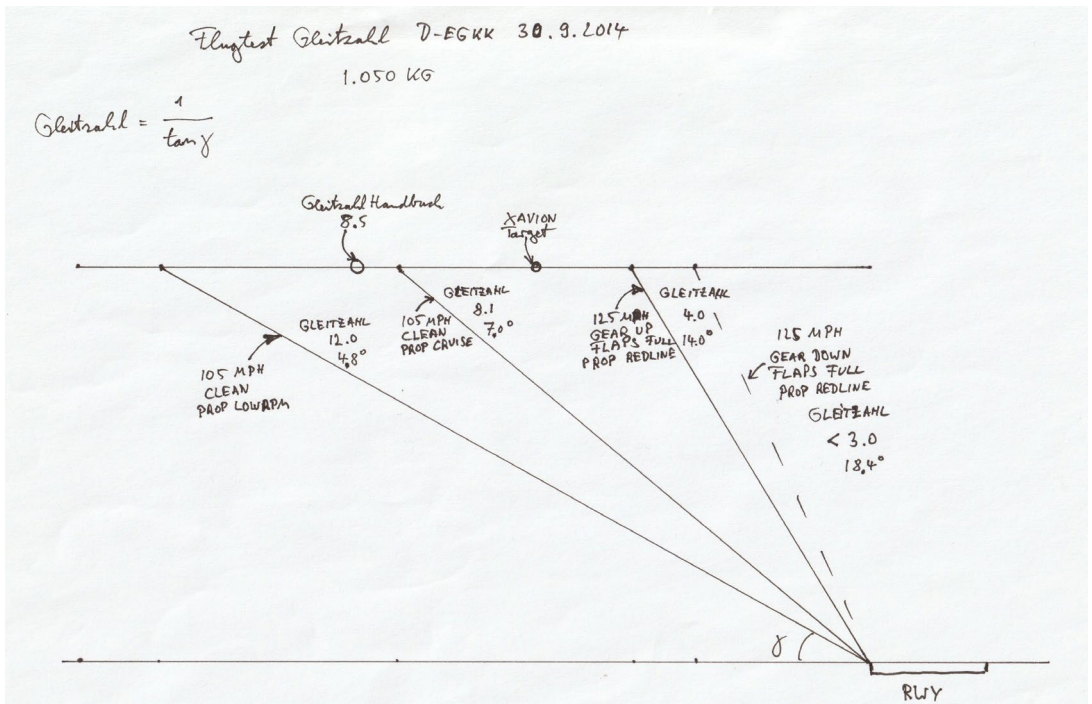 Flugtest Gleitzahl D-EGKK 30.9.2014
1.050 KG
Gleitzahl = 1
tan γ
Gleitzahl Handbuch
8.5
XAVION
Target
GLEITZAHL
12.0
4,8°
105 MPH
CLEAN
PROP LOW RPM
GLEITZAHL
8.1
7,0°
105 MPH
CLEAN
PROP CRUISE
GLEITZAHL
4.0
14.0°
125 MPH
GEAR UP
FLAPS FULL
PROP REDLINE
125 MPH
GEAR DOWN
FLAPS FULL
PROP REDLINE
GLEITZAHL
< 3.0
18,4°
γ
RWY